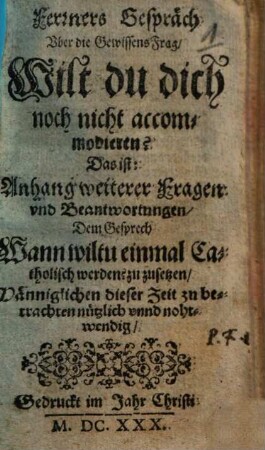 Ferrners Gespräch
1
Vber die Gewissens Frag/
Wilt du dich
noch nicht accom-
modieren?
Das ist:
Anhang weiterer Fragen
vnd Beantwortungen/
Dem Gesprech
Wann wiltu einmal Ca-
tholisch werden? zu zusetzen/
Männiglichen dieser Zeit zu be-
trachten nützlich vnnd noht-
wendig/.
Gedruckt im Jahr Christi
M. DC. XXX.